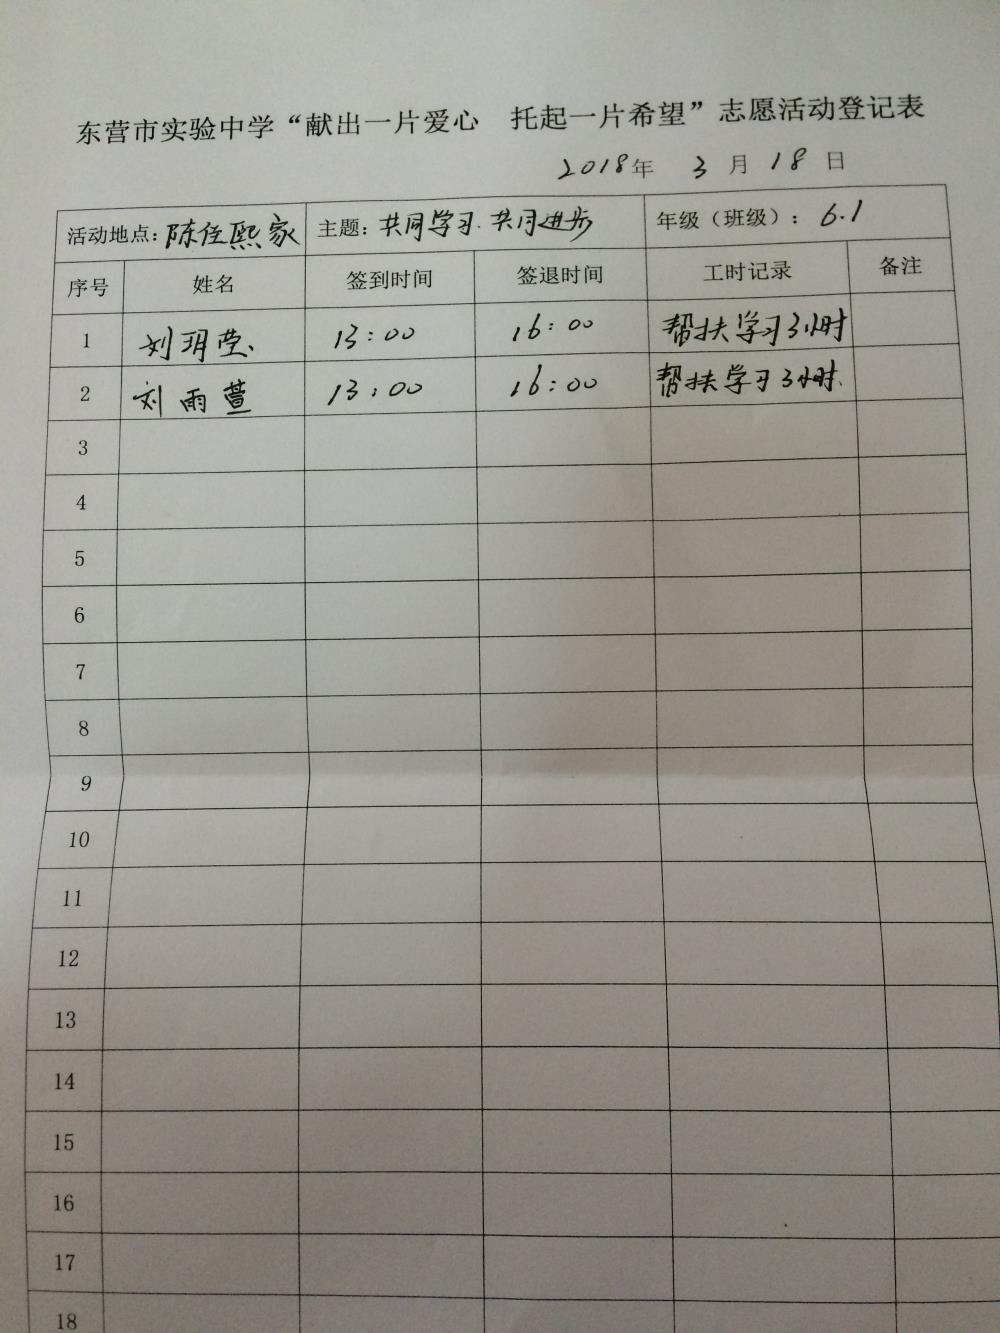 东营市实验中学“献出一片爱心 托起一片希望”志愿活动登记表
2018年 3月18日
活动地点：陈任熙家 主题：共同学习、共同进步 年级（班级）：6.1
序号 姓名 签到时间 签退时间 工时记录 备注
1 刘玥莹 13:00 16:00 帮扶学习3小时
2 刘雨萱 13:00 16:00 帮扶学习3小时
3
4
5
6
7
8
9
10
11
12
13
14
15
16
17
18